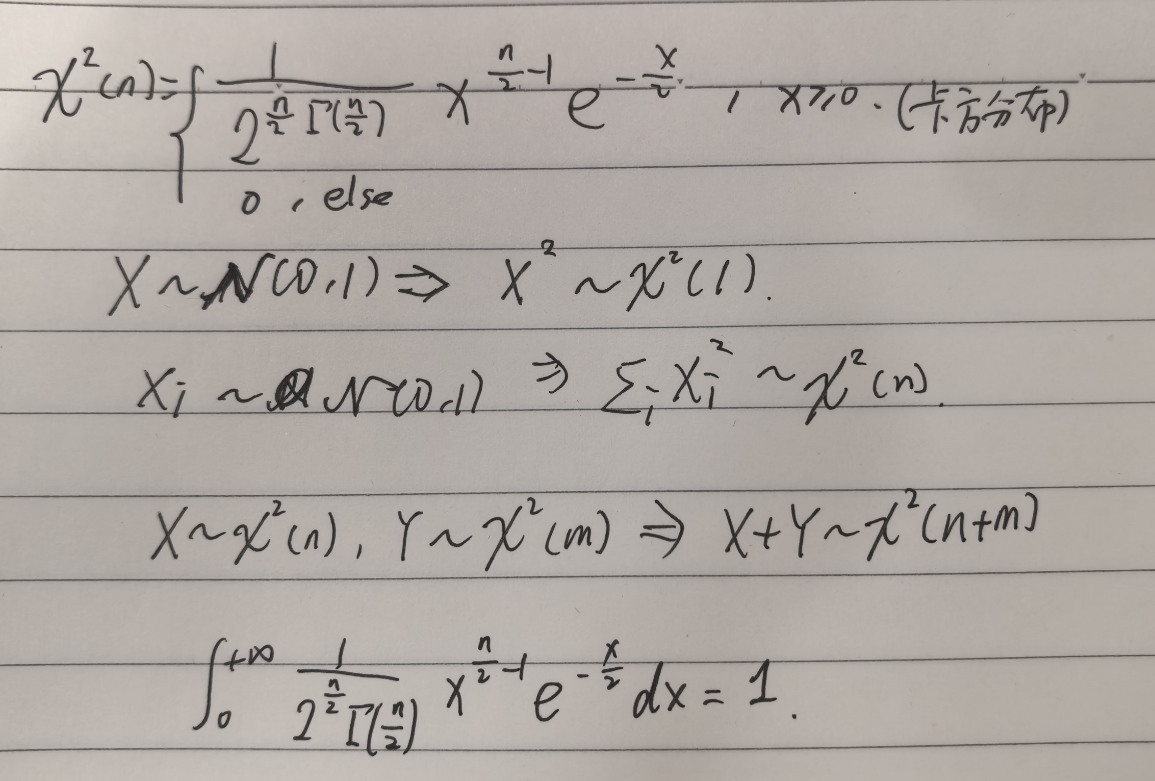 χ²(n) = { 1/(2^(n/2) Γ(n/2)) x^(n/2 -1) e^(-x/2) , x≥0. (卡方分布)
0 , else
X ~ N(0,1) ⇒ X² ~ χ²(1).
Xi ~ N(0,1) ⇒ Σi Xi² ~ χ²(n).
X ~ χ²(n), Y ~ χ²(m) ⇒ X+Y ~ χ²(n+m)
∫₀^(+∞) 1/(2^(n/2) Γ(n/2)) x^(n/2 -1) e^(-x/2) dx = 1.